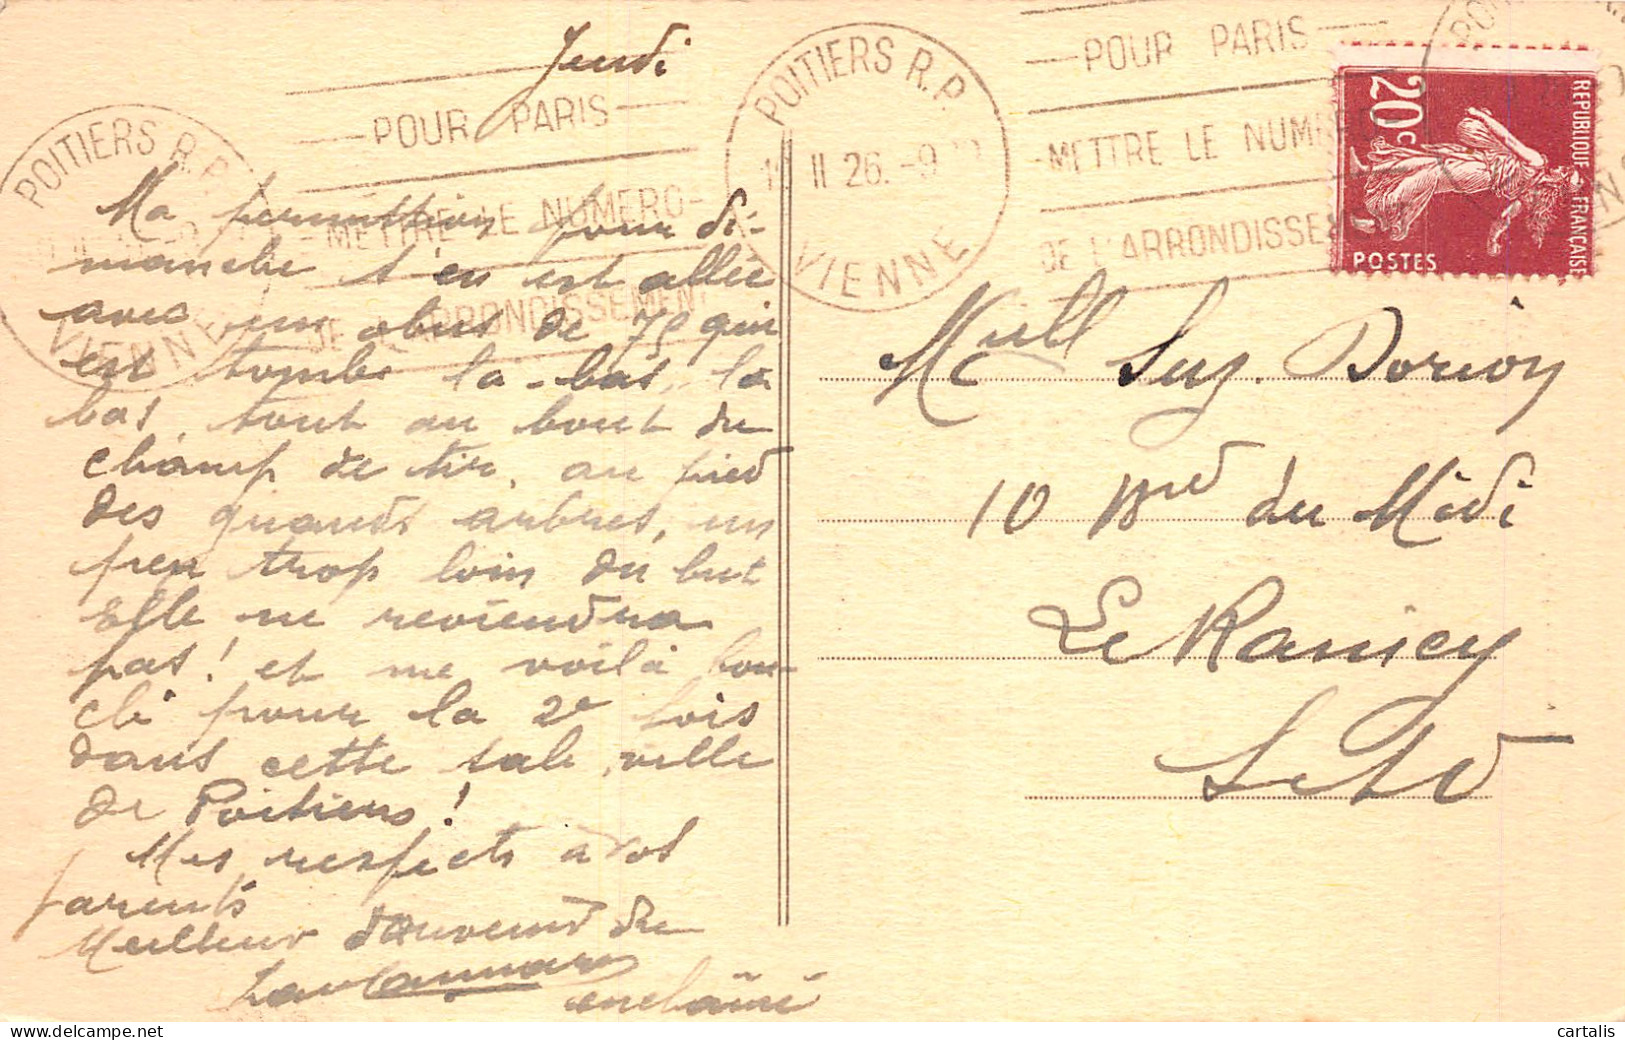 Jeudi
Ma permission pour di-
manche s'en est allée
avec un obus de 75 qui
est tombé la-bas, la
bas, tout au bout du
champ de tir, au pied
des grands arbres, un
peu trop loin du but
Elle ne reviendra
pas ! et me voilà bou-
clé pour la 2e fois
dans cette sale ville
de Poitiers !
Mes respects à vos
parents
Meilleur souvenir du
enchaîné
POITIERS R.P.
VIENNE
POUR PARIS
METTRE LE NUMERO
DE L'ARRONDISSEMENT
POITIERS R.P.
II 26
VIENNE
POUR PARIS
METTRE LE NUM
DE L'ARRONDISSE
20c
REPUBLIQUE FRANÇAISE
POSTES
Melle Suz. Dorion
10 Bard du Midi
Le Raincy
S et O
cartalis
delcampe.net